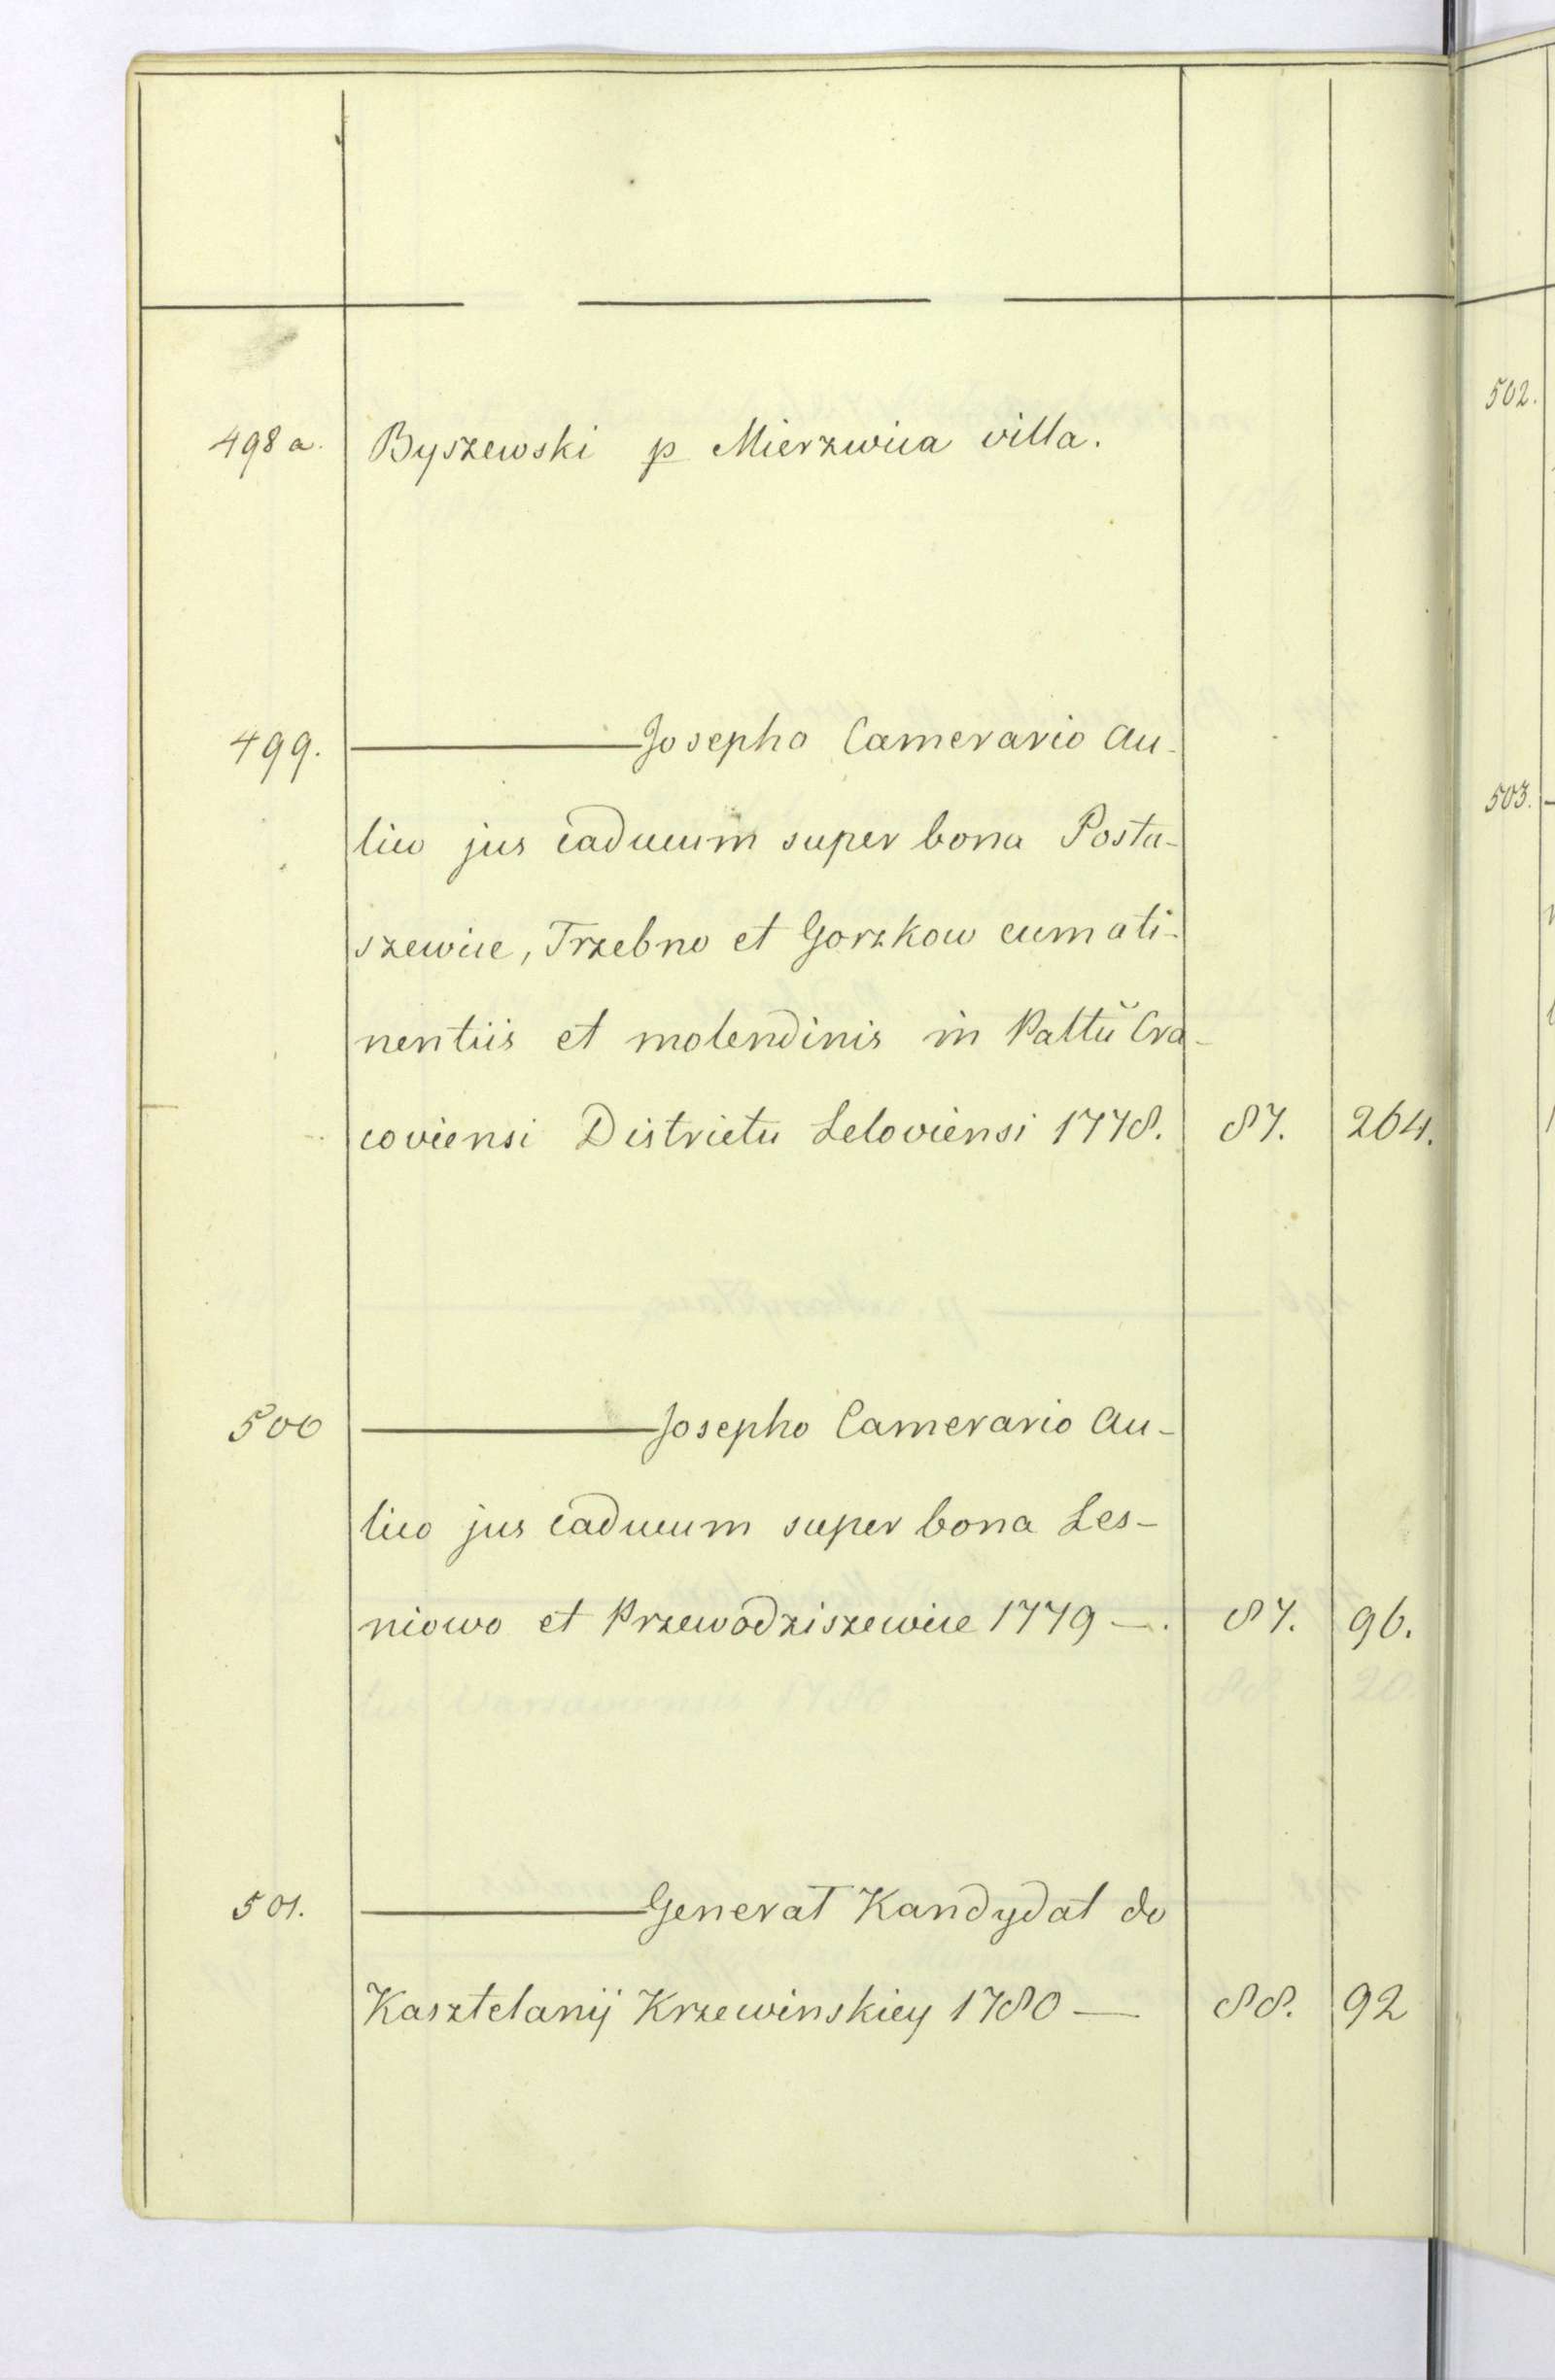 498 a. Byszewski p Mierzwica villa.
499. ——— Josepho Camerario Au-
lico jus caducum super bona Posta-
szewice, Trzebno et Gorzkow cum ati-
nentiis et molendinis in Pallŭ Cra-
coviensi Districtu Leloviensi 1778. 87. 264.
500 ——— Josepho Camerario Au-
lico jus caducum super bona Les-
niowo et Przewodziszewice 1779 —. 87. 96.
501. ——— Generał Kandydat do
Kasztelanij Krzewinskiey 1780 — 88. 92
502.
503.